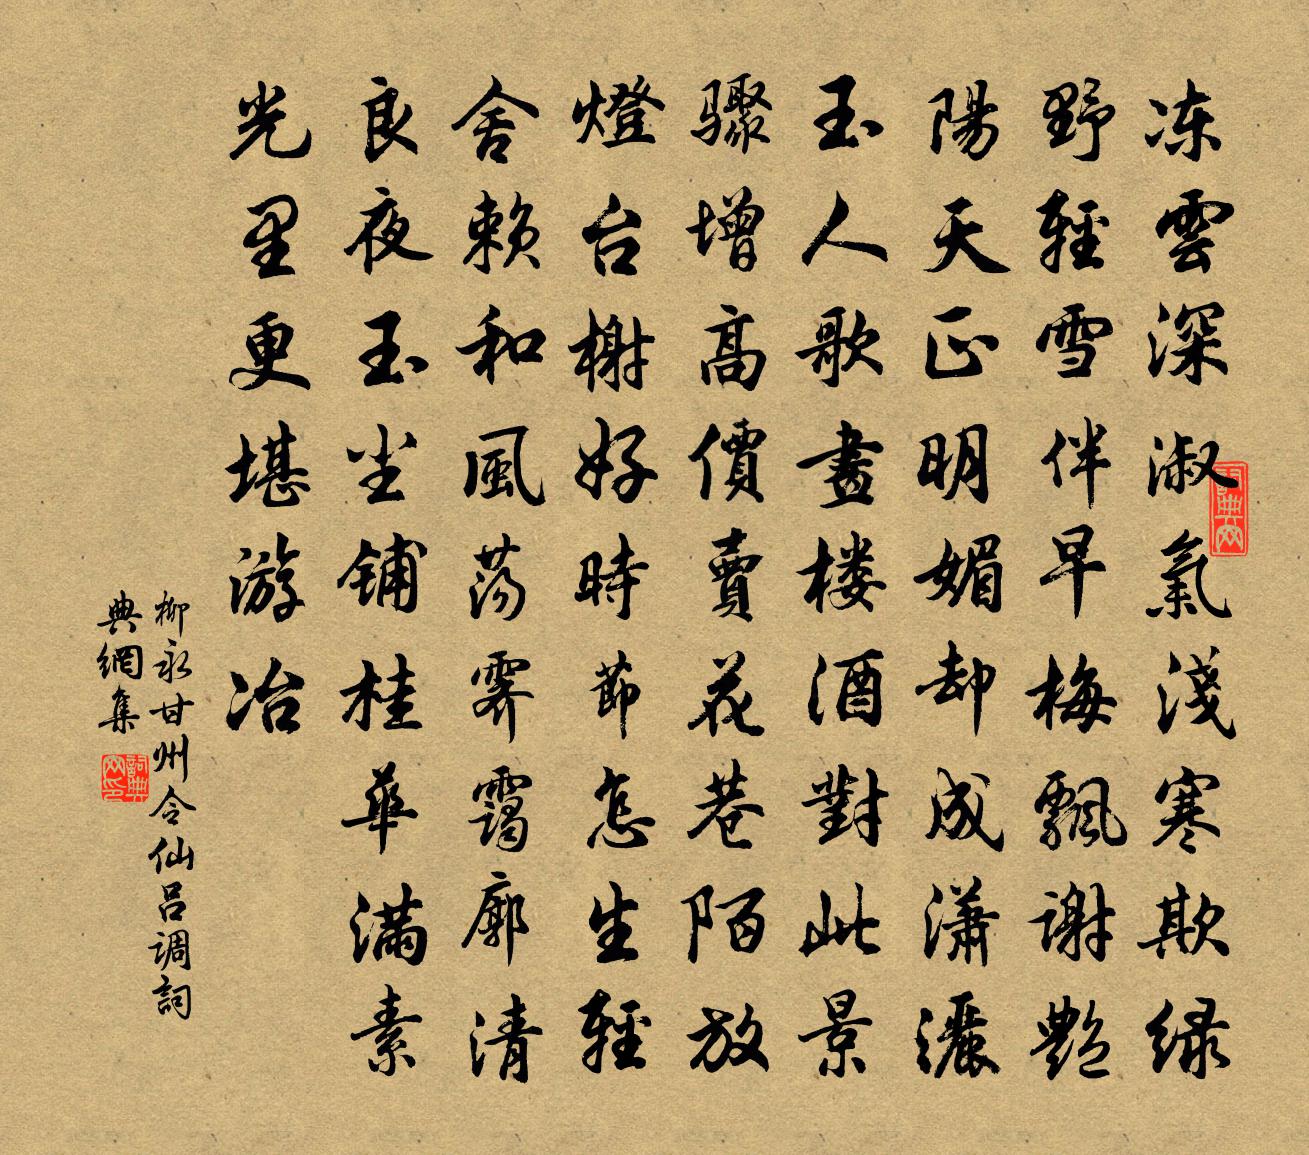 冻雲深淑氣淺寒欺绿
野輕雪伴早梅飄謝艷
陽天正明媚却成潇灑
玉人歌畫楼酒對此景
驟增高價賣花巷陌放
燈台榭好時節怎生輕
舍赖和風荡霽靄廓清
良夜玉尘铺桂華满素
光里更堪游冶
柳永甘州令仙吕调詞
典網集
詞典网
詞典网印